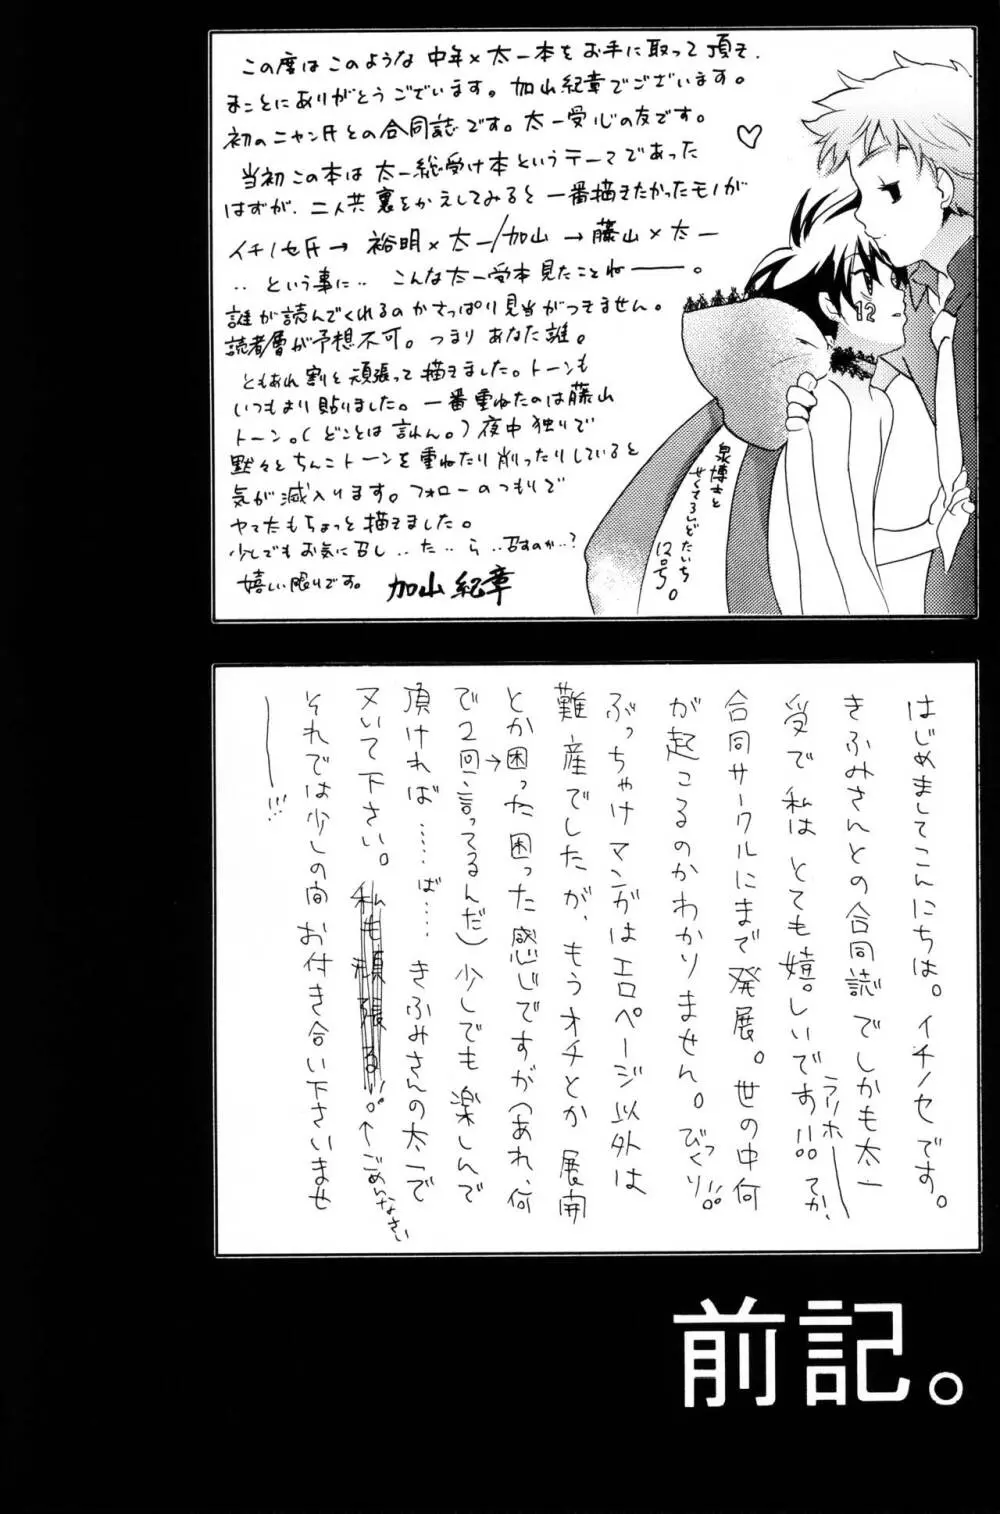 この度はこのような 中年×太一本を お手に取って 頂き、
まことにありがとうございます。加山紀章でございます。
初のニャン氏との合同誌です。太一受心の友です。
当初この本は 太一総受け本というテーマであった
はずが、二人共裏をかえしてみると 一番描きたかったモノが
イチノセ氏→ 裕明×太一/加山→ 藤山×太一
‥という事に‥ こんな太一受本見たことねーー。
誰が読んでくれるのかさっぱり見当がつきません。
読者層が予想不可。つまり あなた誰。
ともあれ割と頑張って描きました。トーンも
いつもより貼りました。一番重ねたのは藤山
トーン。(どことは言わん。)夜中独りで
黙々とちんこトーンを重ねたり削ったりしていると
気が滅入ります。フォローのつもりで
ヤマたもちょっと描きました。
少しでもお気に召し‥た‥ら‥召すのか‥?
嬉しい限りです。 加山紀章
12
泉博士と
せくてろいどたいち
12ごち。
はじめましてこんにちは。イチノセです。
きふみさんとの合同誌でしかも太一
受で私はとても嬉しいです!!。てか、
ラリホー
合同サークルにまで発展。世の中何
が起こるのかわかりません。びっくり!!。
ぶっちゃけマンガはエロページ以外は
難産でしたが、もうオチとか展開
とか困った困った感じですが(あれ、何
で2回言ってるんだ)少しでも楽しんで
頂ければ……ば…… きふみさんの太一で
ヌいて下さい。私も頑張る!!。←ごめんなさい
それでは少しの間お付き合い下さいませ
ーー!!!
前記。